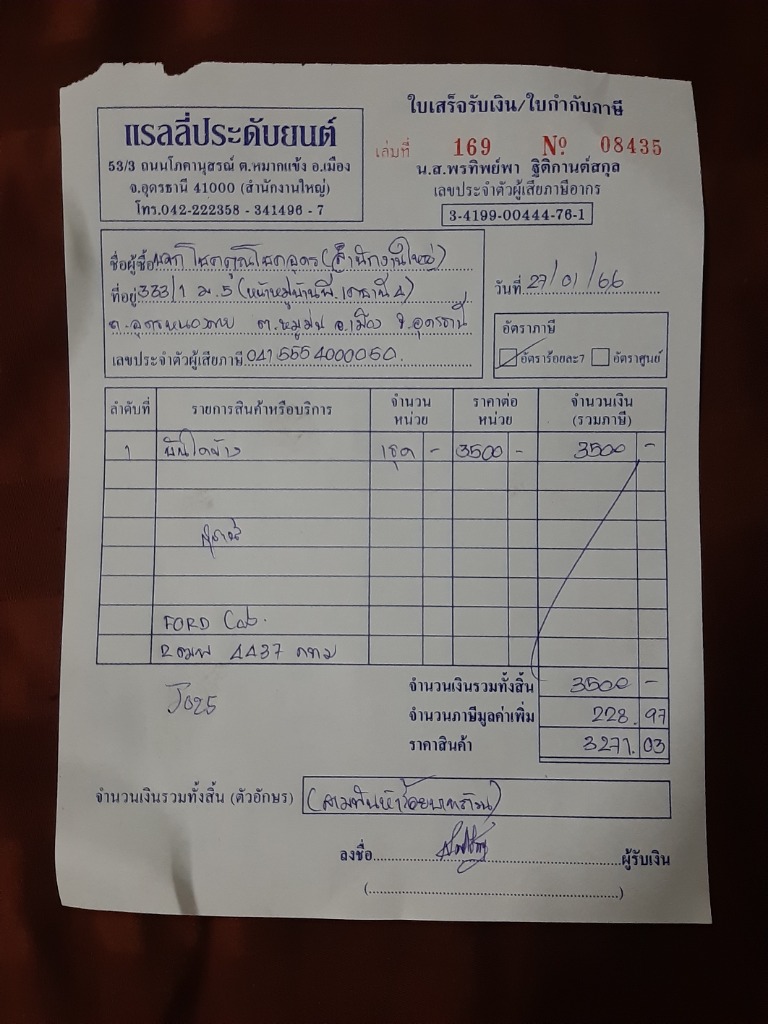 ใบเสร็จรับเงิน/ใบกำกับภาษี
แรลลี่ประดับยนต์
53/3 ถนนโภคานุสรณ์ ต.หมากแข้ง อ.เมือง
จ.อุดรธานี 41000 (สำนักงานใหญ่)
โทร.042-222358 - 341496 - 7
เล่มที่ 169 Nº 08435
น.ส.พรทิพย์พา ฐิติกานต์สกุล
เลขประจำตัวผู้เสียภาษีอากร
3-4199-00444-76-1
ชื่อผู้ซื้อ โชคคูณโชคอุดร (สำนักงานใหญ่)
ที่อยู่ 333/1 ม.5 (หน้าหมู่บ้านพี.เดธานี 4)
ถ.อุดรหนองคาย ต.หมูม่น อ.เมือง จ.อุดรธานี
เลขประจำตัวผู้เสียภาษี 0415554000050
วันที่ 27/01/66
อัตราภาษี
อัตราร้อยละ7 อัตราศูนย์
ลำดับที่ รายการสินค้าหรือบริการ จำนวนหน่วย ราคาต่อหน่วย จำนวนเงิน (รวมภาษี)
1 บันไดข้าง 1ชุด - 3500 - 3500 -
FORD Cab.
4437
จำนวนเงินรวมทั้งสิ้น 3500 -
จำนวนภาษีมูลค่าเพิ่ม 228.97
ราคาสินค้า 3271.03
จำนวนเงินรวมทั้งสิ้น (ตัวอักษร) (สามพันห้าร้อยบาทถ้วน)
ลงชื่อ ผู้รับเงิน